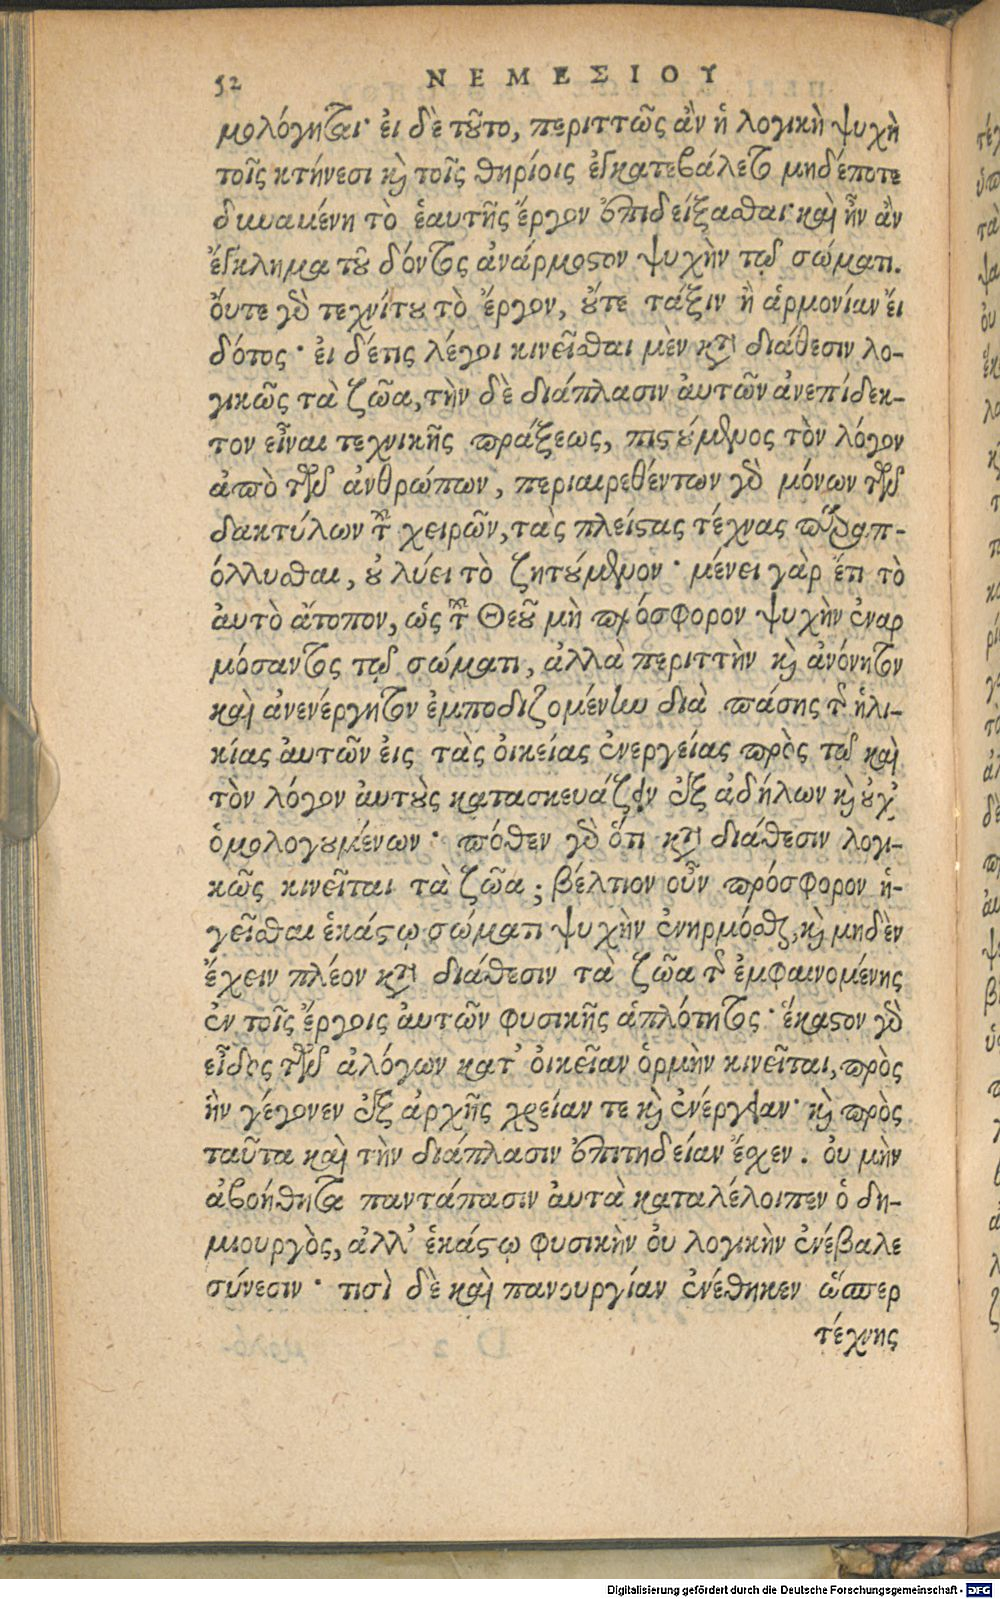 52 ΝΕΜΕΣΙΟΥ
μολόγηται· εἰ δὲ τοῦτο, περιττῶς ἂν ἡ λογικὴ ψυχὴ
τοῖς κτήνεσι καὶ τοῖς θηρίοις ἐγκατεβάλετο μηδέποτε
δυναμένη τὸ ἑαυτῆς ἔργον ἐπιδείξασθαι· καὶ ἦν ἂν
ἔγκλημα τοῦ δόντος ἀνάρμοστον ψυχὴν τῷ σώματι.
ὄυτε γὰρ τεχνίτου τὸ ἔργον, οὔτε τάξιν ἢ ἁρμονίαν εἰ
δότος· εἰ δέ τις λέγοι κινεῖσθαι μὲν κατὰ διάθεσιν λο-
γικῶς τὰ ζῶα, τὴν δὲ διάπλασιν ἀυτῶν ἀνεπίδεκ-
τον εἶναι τεχνικῆς πράξεως, πιστούμενος τὸν λόγον
ἀπὸ τῶν ἀνθρώπων, περιαιρεθέντων γὰρ μόνων τῶν
δακτύλων τῶν χειρῶν, τὰς πλείστας τέχνας συναπ-
όλλυσθαι, οὐ λύει τὸ ζητούμενον· μένει γὰρ ἔτι τὸ
ἀυτὸ ἄτοπον, ὡς τοῦ Θεοῦ μὴ πρόσφορον ψυχὴν ἐναρ
μόσαντος τῷ σώματι, ἀλλὰ περιττὴν καὶ ἀνόνητον
καὶ ἀνενέργητον ἐμποδιζομένην διὰ πάσης τῆς ἡλι-
κίας ἀυτῶν ἐις τὰς ὀικείας ἐνεργείας πρὸς τῷ καὶ
τὸν λόγον ἀυτοὺς κατασκευάζειν ἐξ ἀδήλων καὶ οὐχ
ὁμολογουμένων· πόθεν γὰρ ὅτι κατὰ διάθεσιν λογι-
κῶς κινεῖται τὰ ζῶα; βέλτιον οὖν πρόσφορον ἡ-
γεῖσθαι ἑκάστῳ σώματι ψυχὴν ἐνηρμόσθαι, καὶ μηδὲν
ἔχειν πλέον κατὰ διάθεσιν τὰ ζῶα τῆς ἐμφαινομένης
ἐν τοῖς ἔργοις ἀυτῶν φυσικῆς ἁπλότητος· ἕκαστον γὰρ
εἶδος τῶν ἀλόγων κατ’ ὀικεῖαν ὁρμὴν κινεῖται, πρὸς
ἣν γέγονεν ἐξ ἀρχῆς χρείαν τε καὶ ἐνέργειαν· καὶ πρὸς
ταῦτα καὶ τὴν διάπλασιν ἐπιτηδείαν ἔσχεν. ὀυ μὴν
ἀβοήθητα παντάπασιν ἀυτὰ καταλέλοιπεν ὁ δη-
μιουργὸς, ἀλλ’ ἑκάστῳ φυσικὴν ὀυ λογικὴν ἐνέβαλε
σύνεσιν· τισὶ δὲ καὶ πανουργίαν ἐνέθηκεν ὥσπερ
τέχνης
Digitalisierung gefördert durch die Deutsche Forschungsgemeinschaft - DFG